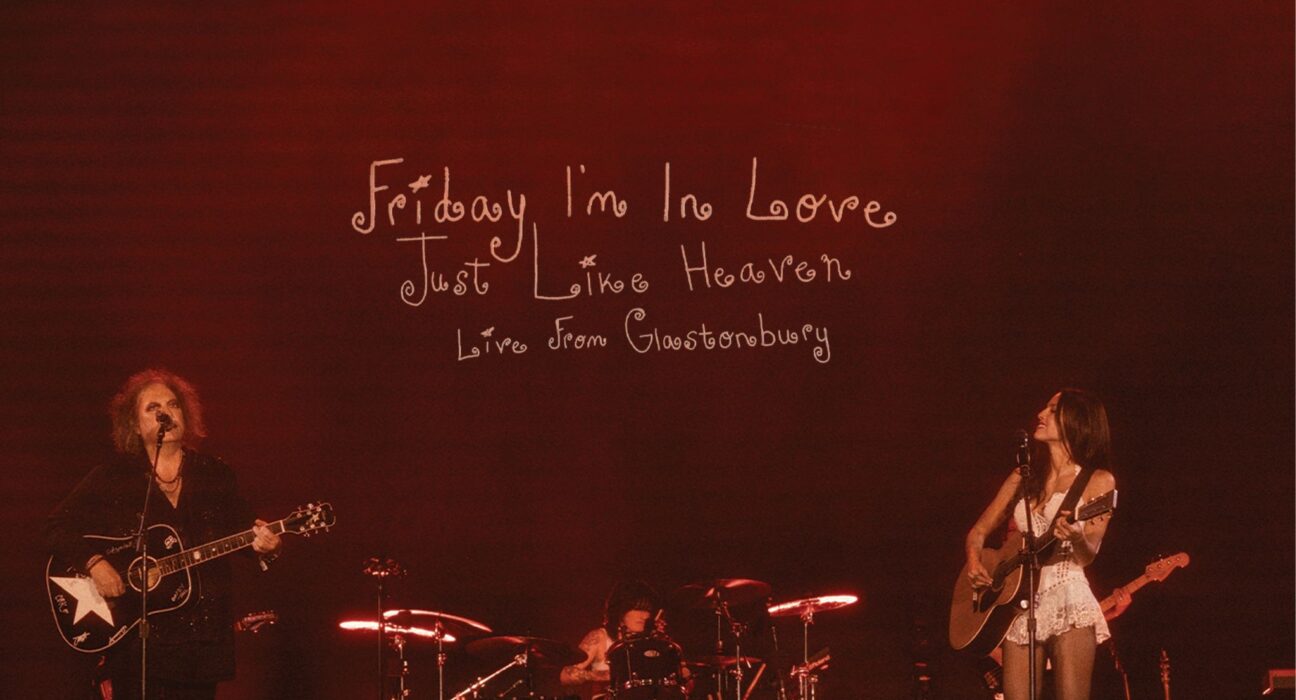 Friday I'm In Love
Just Like Heaven
Live From Glastonbury